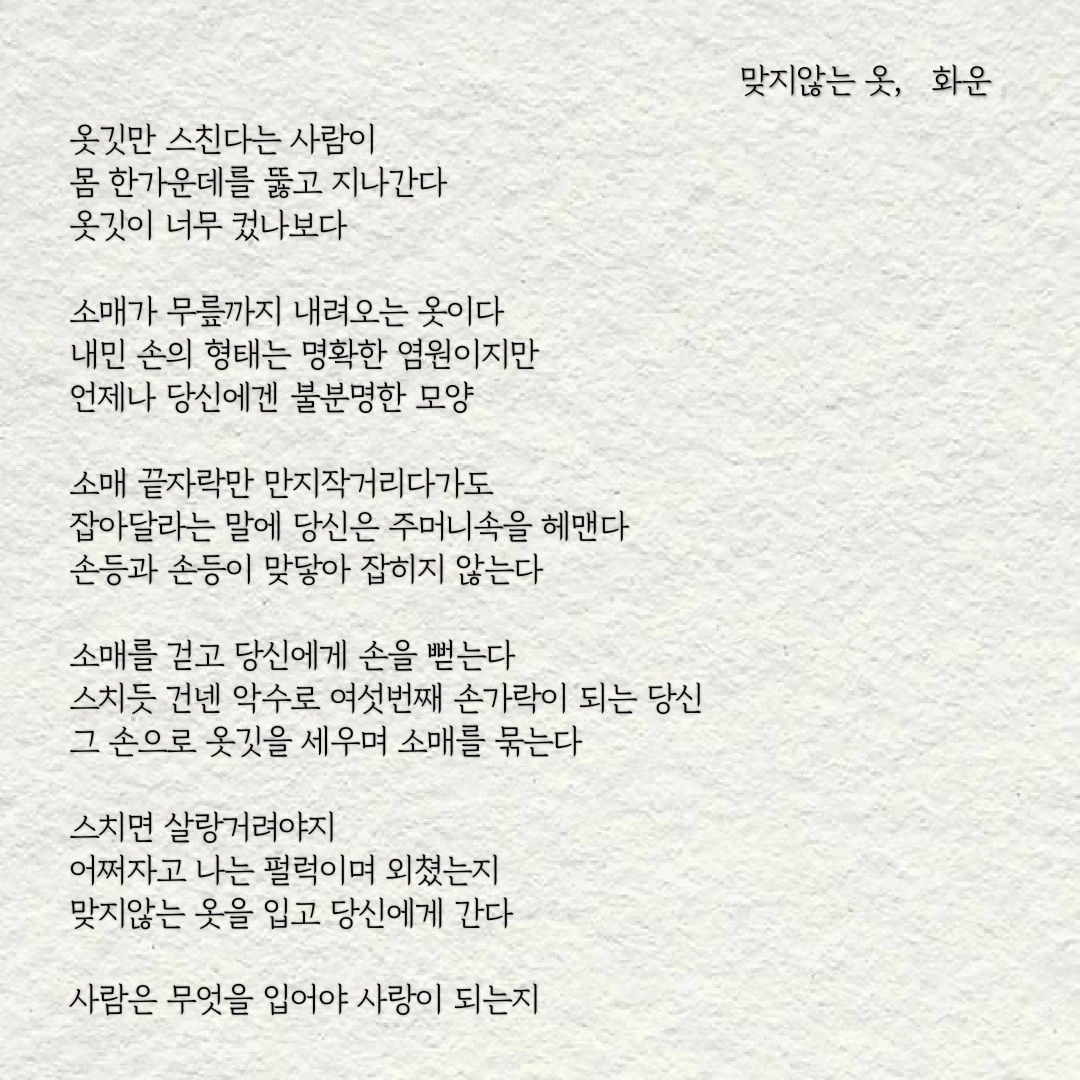 맞지않는 옷, 화운
옷깃만 스친다는 사람이
몸 한가운데를 뚫고 지나간다
옷깃이 너무 컸나보다
소매가 무릎까지 내려오는 옷이다
내민 손의 형태는 명확한 염원이지만
언제나 당신에겐 불분명한 모양
소매 끝자락만 만지작거리다가도
잡아달라는 말에 당신은 주머니속을 헤맨다
손등과 손등이 맞닿아 잡히지 않는다
소매를 걷고 당신에게 손을 뻗는다
스치듯 건넨 악수로 여섯번째 손가락이 되는 당신
그 손으로 옷깃을 세우며 소매를 묶는다
스치면 살랑거려야지
어쩌자고 나는 펄럭이며 외쳤는지
맞지않는 옷을 입고 당신에게 간다
사람은 무엇을 입어야 사랑이 되는지